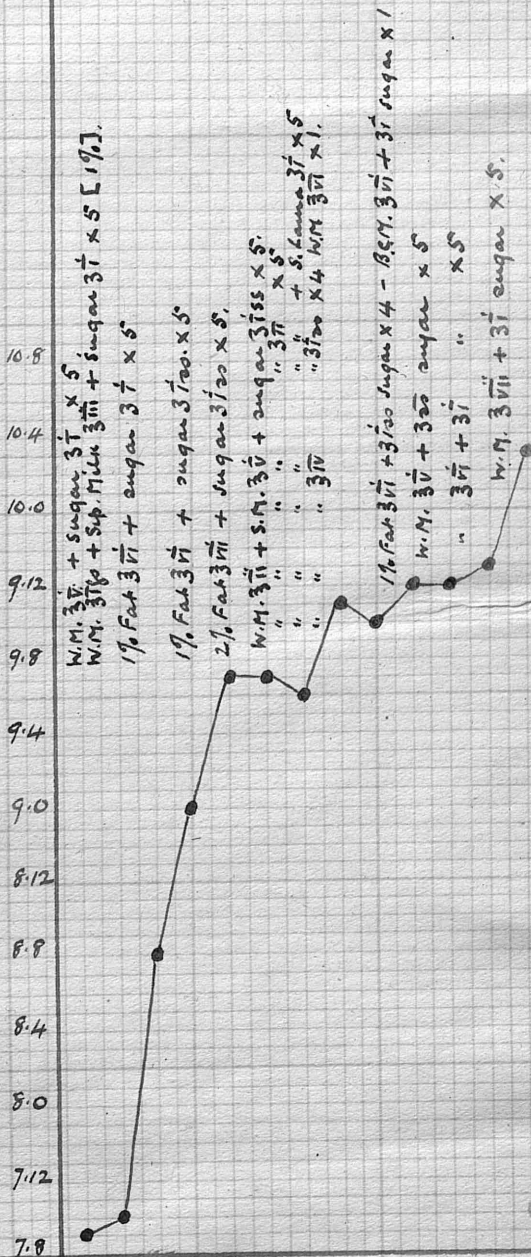 10.8
10.4
10.0
9.12
9.8
9.4
9.0
8.12
8.8
8.4
8.0
7.12
7.8
W.M. ʒvi + sugar ʒi × 5
W.M. + Sep. Milk ʒiii + sugar ʒi × 5 [1%].
1% Fat ʒvi + sugar ʒi × 5
1% Fat ʒvi + sugar ʒiss. × 5
2% Fat ʒvii + sugar ʒiss × 5.
W.M. ʒii + S.M. ʒv + sugar ʒiss × 5.
" " " " ʒii × 5
" " " " + S. ʒi × 5
" " ʒiv " ʒiss × 4 W.M. ʒvii × 1.
1% Fat ʒvi + ʒiss sugar × 4 - ʒvi + ʒi sugar × 1
W.M. ʒv + ʒss sugar × 5
" ʒvi + ʒi " × 5
W.M. ʒvii + ʒi sugar × 5.